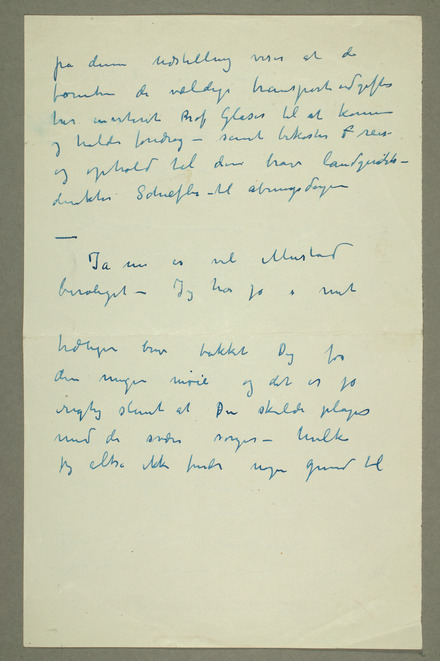 på denne udstilling viser at de
foruden de vældige transportudgifter
har inviteret Prof Glaser til at komme
og holde foredrag – samt bekostet reise
og ophold til den brave landgerichts–
direktør Schiefler – til åbningsdagen
—
Ja nu er vel Mustad
beroliget – Jeg har jo i mit
tidligere brev takket Dig for
den megen møie og det er jo
rigtig slemt at Du skulde plages
med de svære sorger – hvilke
jeg altså ikke finder nogen grund til